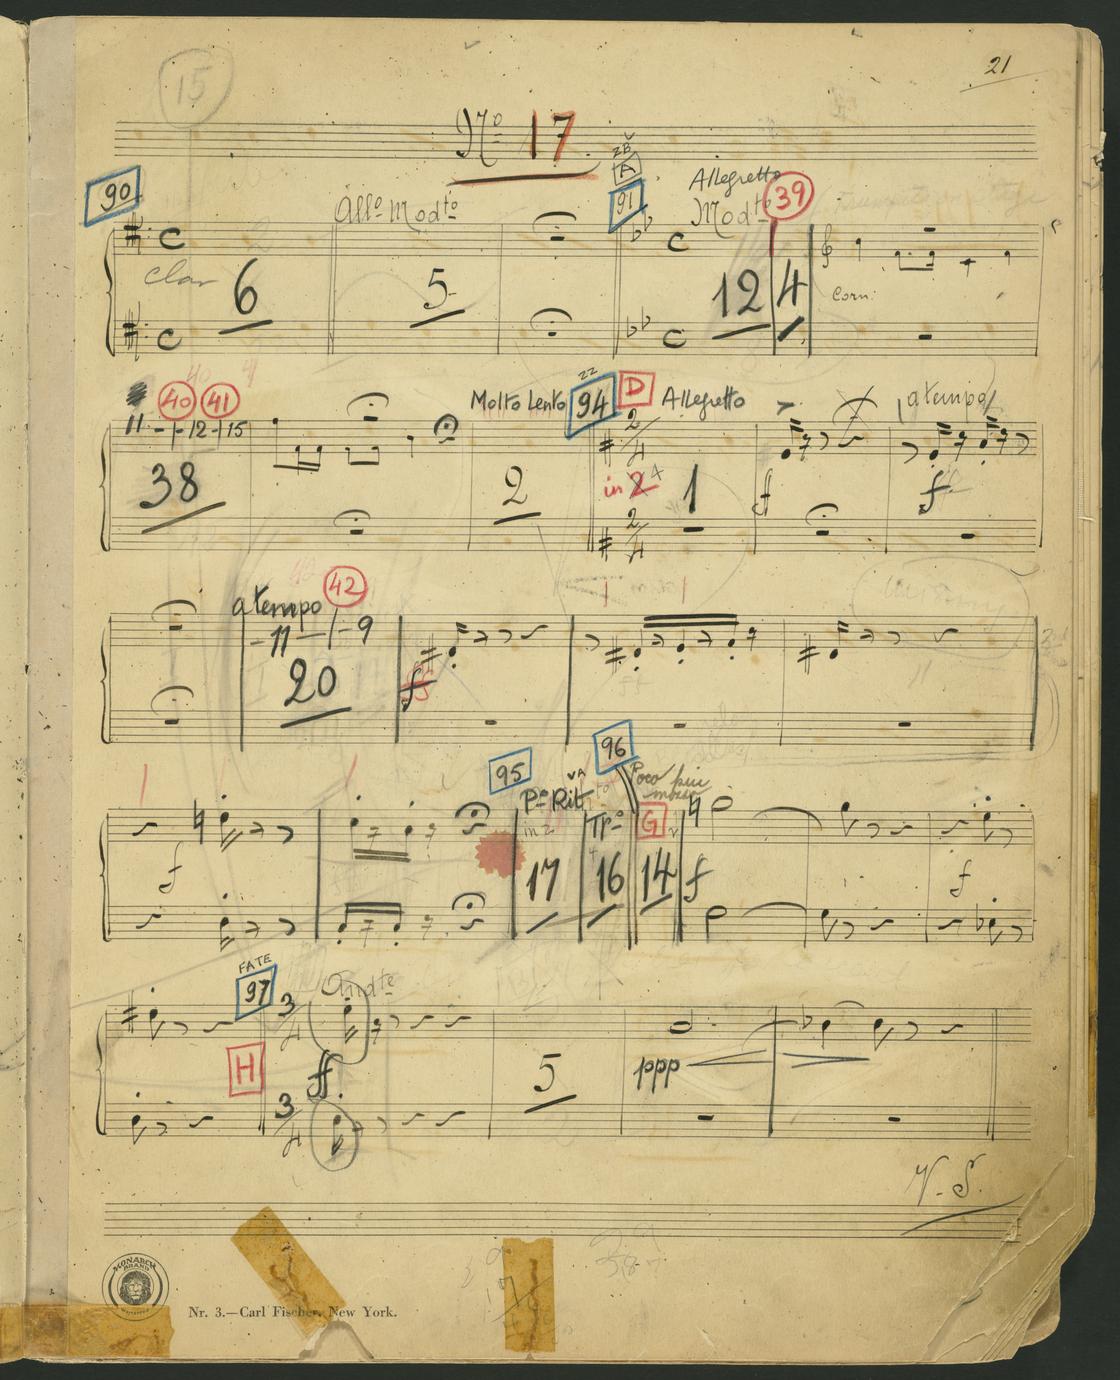 15
21
No 17
90
Allo Modto
A
91
Allegretto
Modto
39
C
C
Clar
6
5
12
4
Corn:
C
C
40
41
11 - - 12 - 15
38
Molto Lento
2
94
D
Allegretto
2/4
in 2
1
f
a tempo
f
2/4
a tempo
42
- 11 - - 9
20
f
f
95
in 2
17
96
16
Poco più
mosso
G
14
f
f
FATE
97
H
3/4
Andte
ff.
3/4
5
ppp
V. S.
MONARCH
BRAND
Nr. 3.—Carl Fischer, New York.